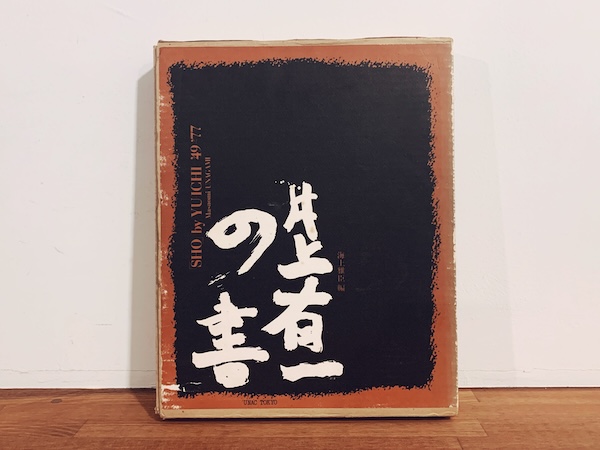 井上有一
の書
海上雅臣 編
SHO by YU-ICHI '49-'77
Masaomi UNAGAMI
UNAC TOKYO